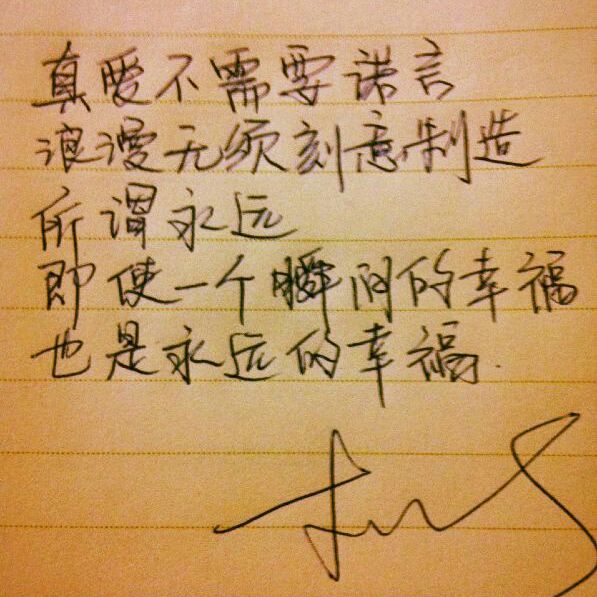 真爱不需要诺言
浪漫无须刻意制造
所谓永远
即使一个瞬间的幸福
也是永远的幸福.